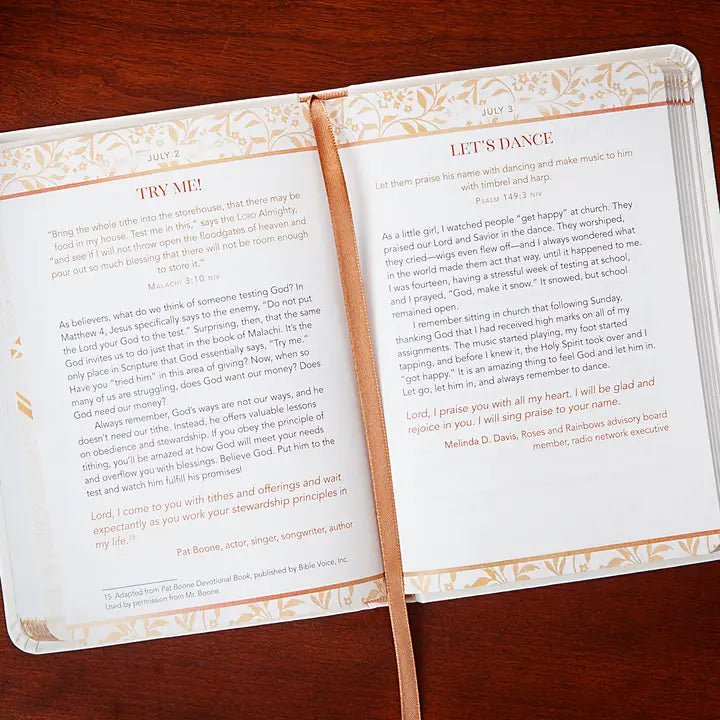 JULY 2
TRY ME!
“Bring the whole tithe into the storehouse, that there may be
food in my house. Test me in this,” says the LORD Almighty,
“and see if I will not throw open the floodgates of heaven and
pour out so much blessing that there will not be room enough
to store it.”
MALACHI 3:10 NIV
As believers, what do we think of someone testing God? In
Matthew 4, Jesus specifically says to the enemy, “Do not put
the Lord your God to the test.” Surprising, then, that the same
God invites us to do just that in the book of Malachi. It’s the
only place in Scripture that God essentially says, “Try me.”
Have you “tried him” in this area of giving? Now, when so
many of us are struggling, does God want our money? Does
God need our money?
Always remember, God’s ways are not our ways, and he
doesn’t need our tithe. Instead, he offers valuable lessons
on obedience and stewardship. If you obey the principle of
tithing, you’ll be amazed at how God will meet your needs
and overflow you with blessings. Believe God. Put him to the
test and watch him fulfill his promises!
Lord, I come to you with tithes and offerings and wait
expectantly as you work your stewardship principles in
my life.15
Pat Boone, actor, singer, songwriter, author
15 Adapted from Pat Boone Devotional Book, published by Bible Voice, Inc.
Used by permission from Mr. Boone.
JULY 3
LET’S DANCE
Let them praise his name with dancing and make music to him
with timbrel and harp.
PSALM 149:3 NIV
As a little girl, I watched people “get happy” at church. They
praised our Lord and Savior in the dance. They worshiped,
they cried—wigs even flew off—and I always wondered what
in the world made them act that way, until it happened to me.
I was fourteen, having a stressful week of testing at school,
and I prayed, “God, make it snow.” It snowed, but school
remained open.
I remember sitting in church that following Sunday,
thanking God that I had received high marks on all of my
assignments. The music started playing, my foot started
tapping, and before I knew it, the Holy Spirit took over and I
“got happy.” It is an amazing thing to feel God and let him in.
Let go, let him in, and always remember to dance.
Lord, I praise you with all my heart. I will be glad and
rejoice in you. I will sing praise to your name.
Melinda D. Davis, Roses and Rainbows advisory board
member, radio network executive